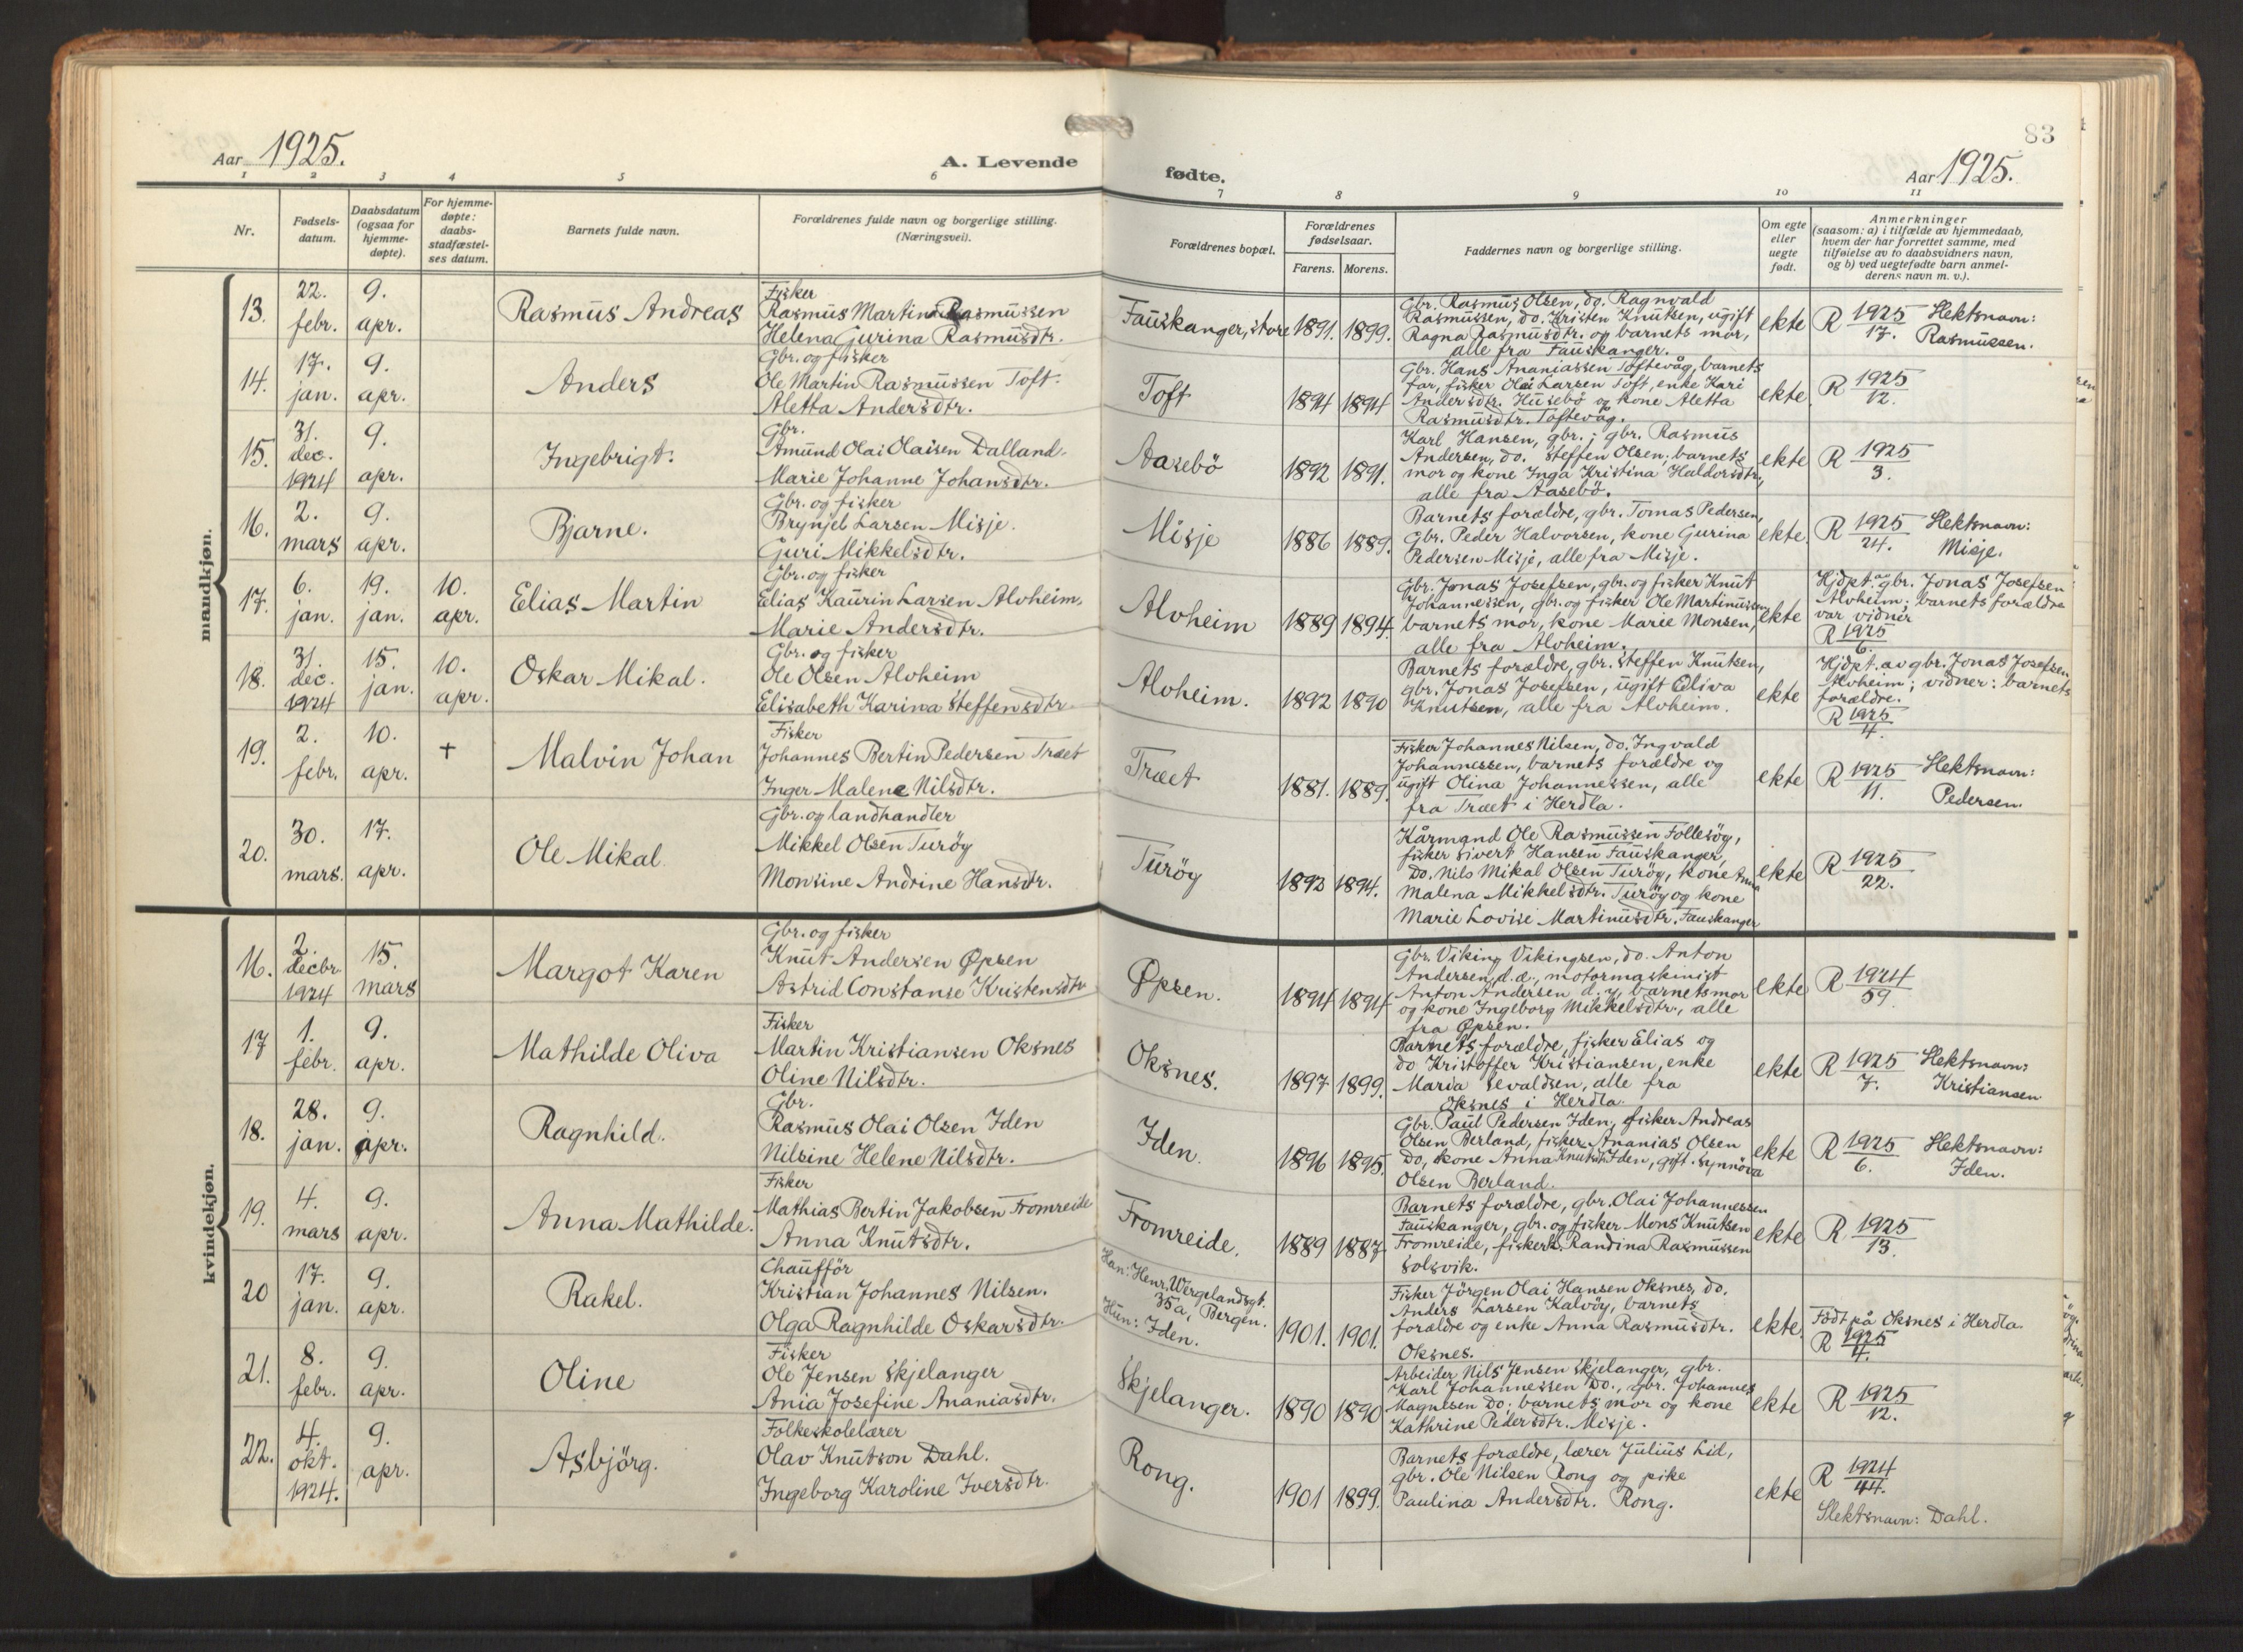 83
Aar 1925.
A. Levende
fødte.
Aar 1925.
1 2 3 4 5 6 7 8 9 10 11
Nr.
Fødsels-
datum.
Daabsdatum
(ogsaa for
hjemme-
døpte).
For hjemme-
døpte:
daabs-
stadfæstel-
ses datum.
Barnets fulde navn.
Forældrenes fulde navn og borgerlige stilling.
(Næringsvei).
Forældrenes bopæl.
Forældrenes
fødselsaar.
Farens. Morens.
Faddernes navn og borgerlige stilling.
Om egte
eller
uegte
født.
Anmerkninger
(saasom: a) i tilfælde av hjemmedaab,
hvem der har forrettet samme, med
tilføielse av to daabsvidners navn,
og b) ved uegtefødte barn anmel-
derens navn m. v.).
mandkjøn.
13.
22.
febr.
9.
apr.
Rasmus Andreas
Fisker
Rasmus Martin Rasmussen
Helena Gurina Rasmusdtr.
Fauskanger, store
1891. 1899.
Gbr. Rasmus Olsen, do. Ragnvald
Rasmussen, do. Kristen Knutsen, ugift
Ragna Rasmusdtr. og barnets mor,
alle fra Fauskanger.
ekte
R 1925
17.
Slektsnavn:
Rasmussen.
14.
17.
jan.
9.
apr.
Anders
Gbr. og fisker
Ole Martin Rasmussen Toft.
Aletta Andersdtr.
Toft
1894 1894
Gbr. Hans Ananiassen Toftevåg, barnets
far, fisker Olai Larsen Toft, enke Kari
Andersdtr. Husebö og kone Aletta
Rasmusdtr. Toftevåg.
ekte
R 1925
12.
15.
31.
dec.
1924
9.
apr.
Ingebrigt.
Gbr.
Amund Olai Olaisen Dalland.
Marie Johanne Johansdtr.
Aasebö
1892 1891.
Karl Hansen, gbr.; gbr. Rasmus
Andersen, do. Steffen Olsen; barnets
mor og kone Inga Kristina Haldorsdtr.,
alle fra Aasebö.
ekte
R 1925
3.
16.
2.
mars
9.
apr.
Bjarne.
Gbr. og fisker
Brynjel Larsen Misje.
Guri Mikkelsdtr.
Misje
1886 1889.
Barnets forældre, gbr. Tomas Pedersen,
Gbr. Peder Halvorsen, kone Gurina
Pedersen Misje, alle fra Misje.
ekte.
R 1925
24.
Slektsnavn:
Misje.
17.
6.
jan.
19.
jan.
10.
apr.
Elias Martin
Gbr. og fisker
Elias Kaurin Larsen Alvheim.
Marie Andersdtr.
Alvheim
1889 1894.
Gbr. Jonas Josefsen, gbr. og fisker Knut
Johannessen, gbr. og fisker Ole Martinussen,
barnets mor, kone Marie Monsen,
alle fra Alvheim.
ekte
Hjdpt. av gbr. Jonas Josefsen
Alvheim; barnets forældre
var vidner
R 1925
6.
18.
31.
dec.
1924
15.
jan.
10.
apr.
Oskar Mikal.
Gbr. og fisker
Ole Olsen Alvheim
Elisabeth Karina Steffensdtr.
Alvheim.
1892 1890
Barnets forældre, gbr. Steffen Knutsen,
gbr. Jonas Josefsen, ugift Oliva
Knutsen, alle fra Alvheim.
ekte
Hjdpt. av gbr. Jonas Josefsen
Alvheim; vidner: barnets
forældre.
R 1925
4.
19.
2.
febr.
10.
apr.
+
Malvin Johan
Fisker
Johannes Bertin Pedersen Træet
Inger Malene Nilsdtr.
Træet
1881. 1889.
Fisker Johannes Nilsen, do. Ingvald
Johannessen, barnets forældre og
ugift Olina Johannessen, alle
fra Træet i Herdla.
ekte
R 1925
11.
Slektsnavn:
Pedersen.
20.
30.
mars.
17.
apr.
Ole Mikal
Gbr. og landhandler
Mikkel Olsen Turöy
Monsine Andrine Hansdtr.
Turöy
1892 1894.
Kårmand Ole Rasmussen Follesöy,
fisker Sivert Hansen Fauskanger,
do. Nils Mikal Olsen Turöy, kone Anna
Malena Mikkelsdtr. Turöy og kone
Marie Lovise Martinusdtr. Fauskanger
ekte
R 1925
22.
kvindekjøn.
16.
2.
decbr.
1924
15.
mars
Margot Karen
Gbr. og fisker
Knut Andersen Øpsen
Astrid Constanse Kristensdtr
Øpsen.
1894 1894
Gbr. Viking Vikingsen, do. Anton
Andersen d.æ., motormaskinist
Anton Andersen d.y., barnets mor
og kone Ingeborg Mikkelsdtr., alle
fra Øpsen.
ekte
R 1924
59.
17
1.
febr.
9.
apr.
Mathilde Oliva
Fisker
Martin Kristiansen Oksnes
Oline Nilsdtr.
Oksnes.
1897 1899.
Barnets forældre, fisker Elias og
do Kristoffer Kristiansen, enke
Marda Sevaldsen, alle fra
Oksnes i Herdla.
ekte
R 1925
7.
Slektsnavn:
Kristiansen
18.
28.
jan.
9.
apr.
Ragnhild.
Gbr.
Rasmus Olai Olsen Iden
Nilsine Helene Nilsdtr.
Iden.
1896 1895.
Gbr. Paul Pedersen Iden, fisker Andreas
Olsen Berland, fisker Ananias Olsen
do, kone Anna Knutsdtr Iden, gift Synnöva
Olsen Berland.
ekte
R 1925
6.
Slektsnavn:
Iden.
19.
4.
mars
9.
apr.
Anna Mathilde.
Fisker
Mathias Bertin Jakobsen Fromreide
Anna Knutsdtr.
Fromreide.
1889 1887
Barnets forældre, gbr. Olai Johannessen
Fauskanger, gbr. og fisker Mons Knutsen
Fromreide, fiskerk. Randina Rasmussen
Solsvik.
ekte
R 1925
13.
20
17.
jan.
9.
apr.
Rakel.
Chaufför
Kristian Johannes Nilsen.
Olga Ragnhilde Oskarsdtr.
Han: Henr. Wergelandsgt.
35a, Bergen.
Hun: Iden.
1901. 1901.
Fisker Jörgen Olai Hansen Oksnes, do.
Anders Larsen Kalvöy, barnets
forældre og enke Anna Rasmusdtr.
Oksnes.
ekte.
Födt på Oksnes i Herdla
R 1925
4.
21.
8.
febr.
9.
apr.
Oline
Fisker
Ole Jensen Skjelanger
Ania Josefine Ananiasdtr.
Skjelanger.
1890 1890
Arbeider Nils Jensen Skjelanger, gbr.
Karl Johannessen do., gbr. Johannes
Magnesen do; barnets mor og kone
Kathrine Pedersdtr. Misje.
ekte
R 1925
12.
22.
4.
okt.
1924.
9.
apr.
Asbjörg.
Folkeskolelærer
Olav Knutson Dahl.
Ingeborg Karoline Iversdtr.
Rong.
1901 1899.
Barnets forældre, lærer Julius Lid,
gbr. Ole Nilsen Rong og pike
Paulina Andersdtr. Rong.
ekte
R 1924
44.
Slektsnavn: Dahl.